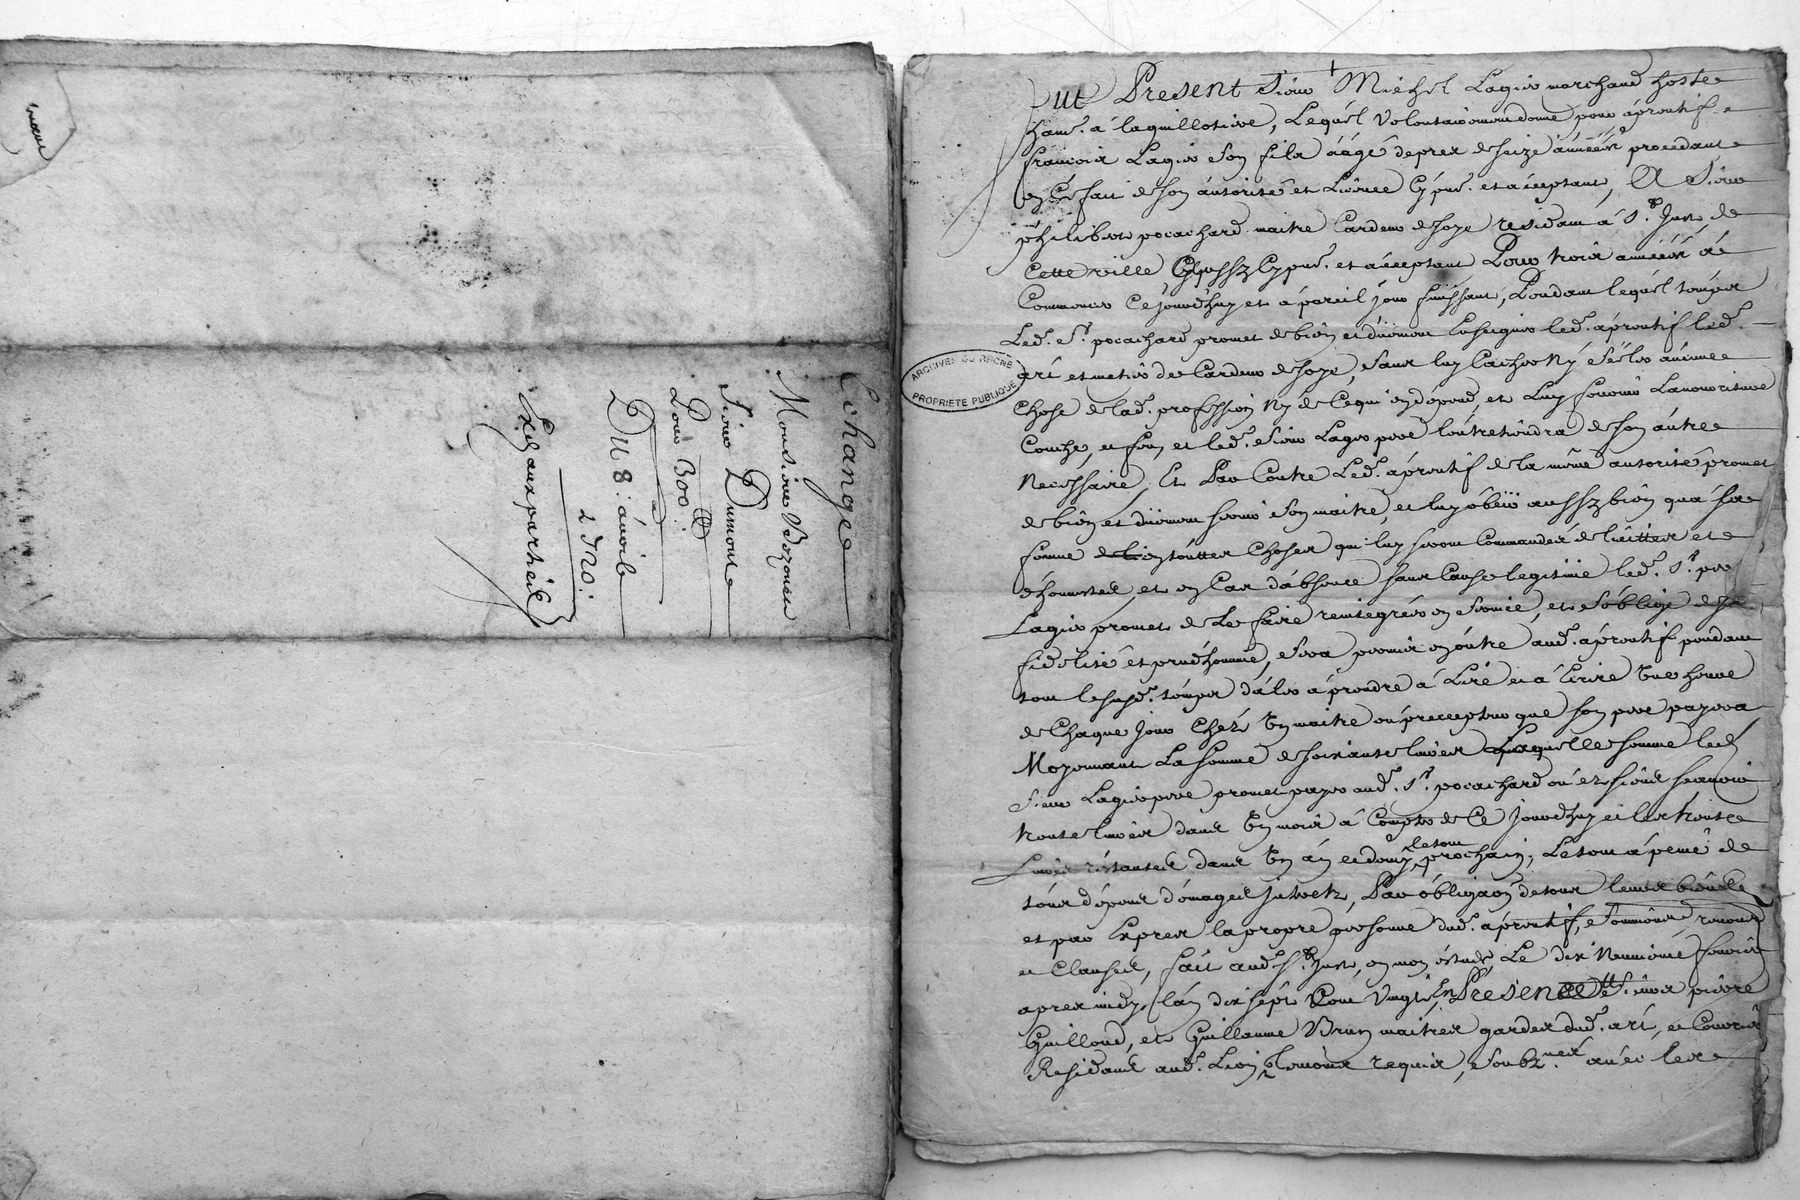 Echange
Monsieur
Sieur Dumont
Pour Boc
Du 8: avril
1720:
Exp.d aux parties
ARCHIVES DU RHÔNE
PROPRIÉTÉ PUBLIQUE
fut Present Sieur Michel Lagier marchand hoste
hant. a laguillotiere, Lequel Volontairement donne pour aprentif
francois Lagier son fils aagé depres de seize années procedant
en ce fait de son autorité et Licence cy pnt. et acceptant, A Sieur
philibert pocachard maitre Cardeur de soye residant a St. Just de
Cette ville aussy cy pnt. et acceptant Pour trois années a
Commencer Cejourdhuy et a pareil jour finissant, Pendant lequel temps
Led. Sr. pocachard promet de bien et düement Enseigner led. aprentif led.
art et metier de Cardeur de soye, sans luy Cacher Ny Céeler aucune
Chose de lad. profession Ny de Cequi en depend, et Luy fournir Lanourriture
Couche, et feu, et led. Sieur Lagier pere lentretiendra de son autre
Necessaire, Et Par Contre Led. aprentif de la même autorité promet
de bien et düement servir son maitre, et luy obeïr aussy bien qua sa
femme en touttes Choses qui luy seront Commandées de licittes et
dhonnestes, et en Cas dabsence sans Cause legitime led. Sr. pere
Lagier promet de Le faire reintegrer en service, et soblige de sa
fidelité et prudhommie, sera permis en outre aud. aprentif pendant
tout lesusd. temps daler aprendre a Lire et a Ecrire Une heure
de Chaque jour Chés Un maitre ou precepteur que son pere payera
Moyennant La somme de soixante livres Laquelle somme led.
Sieur Lagier pere promet payer aud. Sr. pocachard ou és siens scavoir
trente livres dans Un mois a Compter de Ce jourdhuy et les trente
Livres restantes dans Un an et demy prochain, Letout a peine de
letout
tous depens domages interets, Par obligaon de tous leurs biens
et par Exprés la propre personne dud. aprentif, soumions, renons
et Clauses, fait aud. St. Just, en mon étude Le dix Neuvieme fevrier
apres midy, lan dix sept Cent Vingt, En Presence de Sieurs pierre
Guilloud, et Guillaume Brun maitres gardes dud. art, et
Residants aud. Lion, temoins requis, soubznez avec les